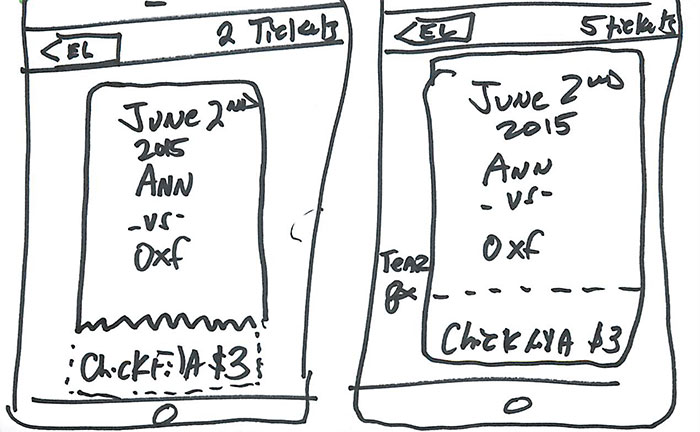 EL
2 Tickets
June 2ND
2015
ANN
-vs-
Oxf
ChickFilA $3
EL
5 tickets
June 2ND
2015
ANN
-vs-
Oxf
Tear
fx
Chick filA $3